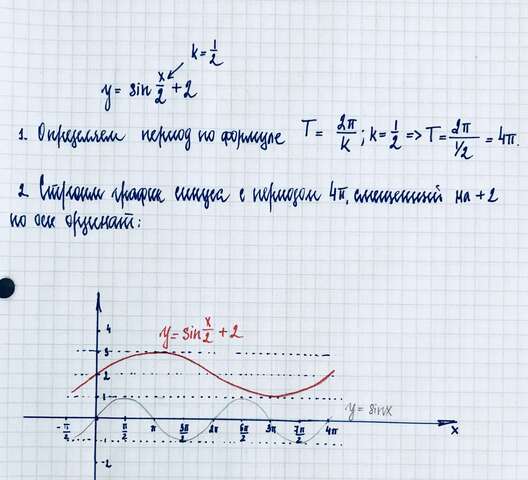 k = 1/2
y = sin x/2 + 2
1. Определяем период по формуле T = 2π/k ; k = 1/2 => T = 2π/1/2 = 4π.
2. Строим график синуса с периодом 4π, смещенный на +2
по оси ординат:
4
y = sin x/2 + 2
3
2
1
y = sin x
-π/2 π/2 π 3π/2 2π 5π/2 3π 7π/2 4π x
-1
-2